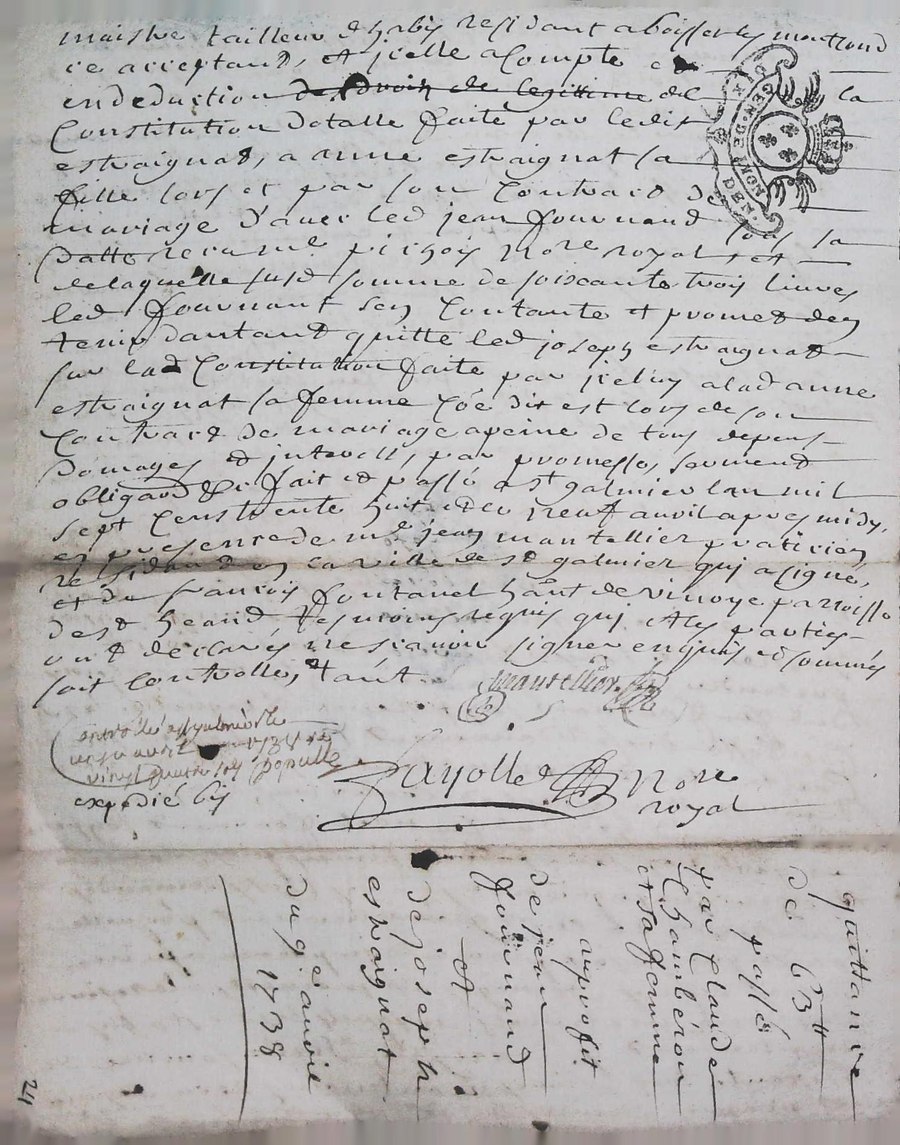 maistre tailleur dhabis residant a boisset les montrond
ce acceptant, et jcelle a compte et
en deduction de droit de legitime de la
Constitution dotalle faite par ledit
estraignat, a anne estraignat sa
fille lors et par son Contract de
mariage d'avec led jean fournand sous sa
datte recu me pichois nore royal, et
de laquelle susd somme de soiscante trois livres
led fournant sen Contante et promet den
tenir dautant quitte led joseph estraignat
sur lad Constitution faite par jceluy a lad anne
estraignat sa femme Coe dit est lors de son
Contract de mariage a peine de tous depens
domages et interests, par promesse, serment
obligaon &c fait et passé a st galmier lan mil
sept Cens trente huit et le neuf avril apres midy,
en presence de me jean mantellier praticien
residant en la ville de st galmier qui a signé,
et de francois fontanel hant de vinoye parroisse
de st heand tesmoins requis qui et les parties
ont declarés ne scavoir signer enquis et sommés
soit controllé, &
mantellier
controllé a st galmier le
avril 1738
vingt quatre sols
expedié
fayolle nore
royal
quittance
de 63tt
passé
par Claude
Chambéron
et sa femme
au profit
de jean
fournand
et
de joseph
estraignat
du 9e avril
1738
24
GEN. DE LYON